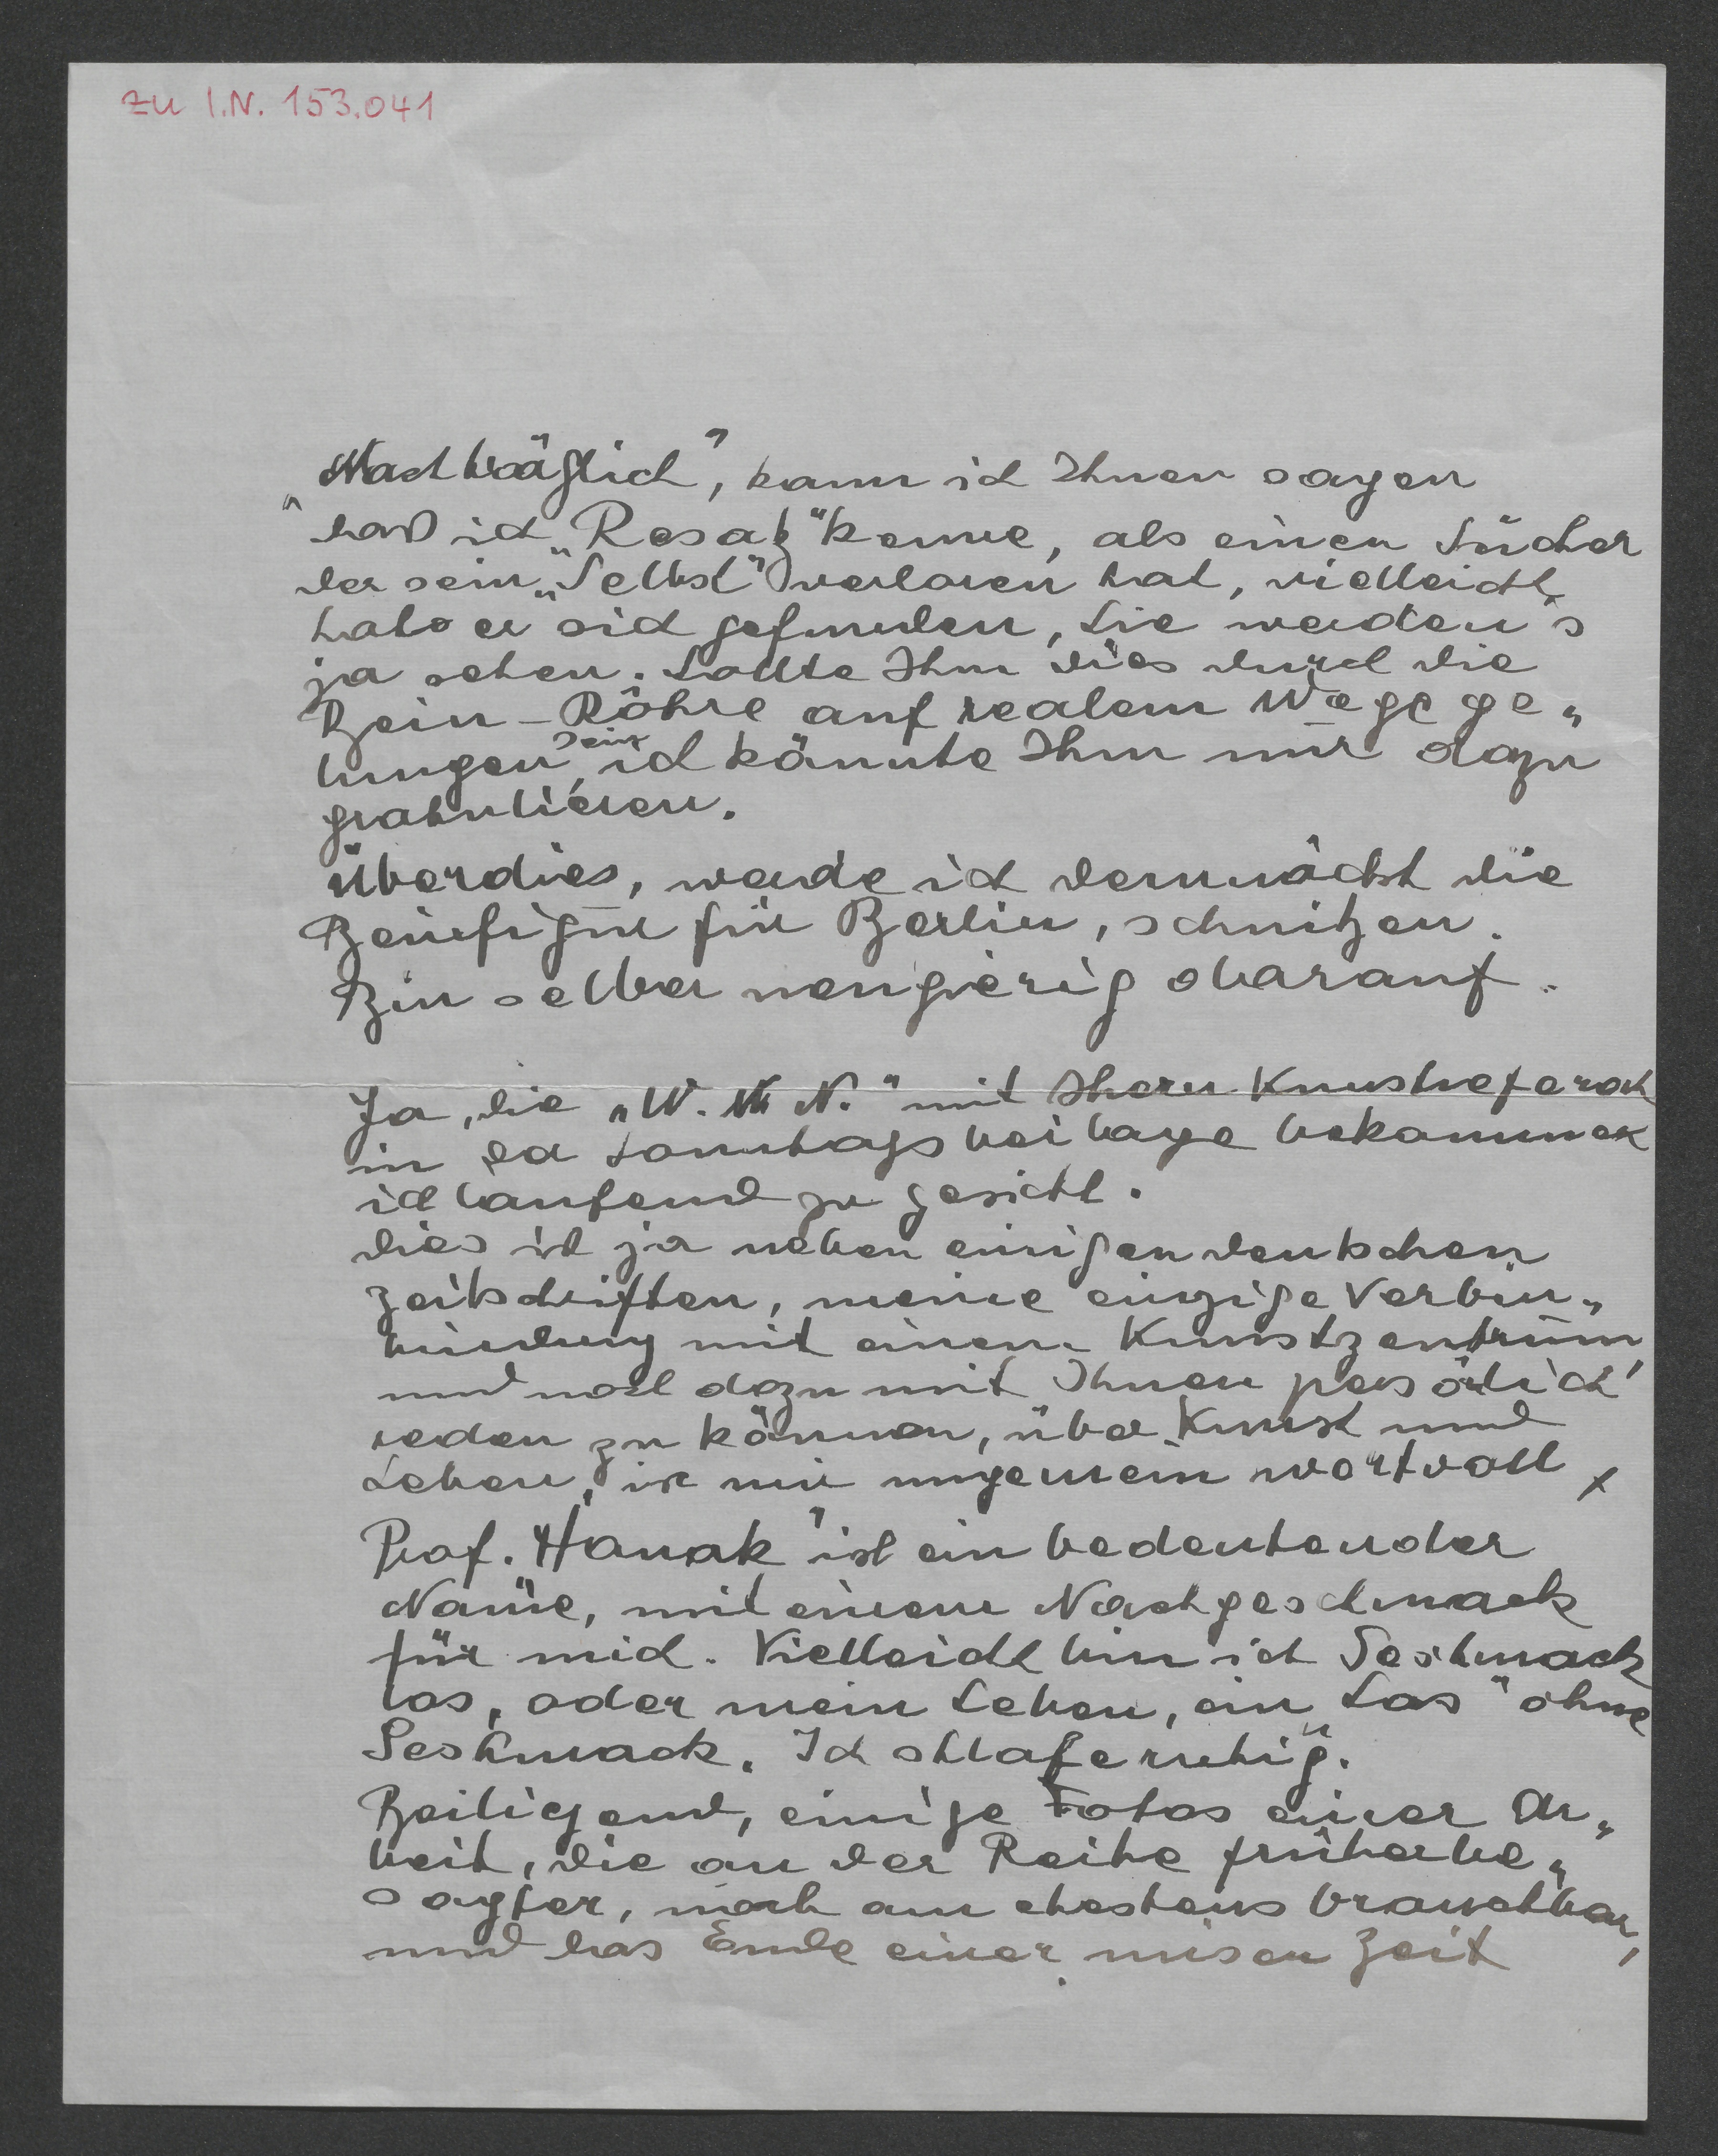 zu I.N. 153.041
„Nachträglich", kann ich Ihnen sagen
daß ich „Rosak" kenne, als einen Sucher
der sein „Selbst" verloren hat, vielleicht
habe er sich gefunden, Sie werden's
ja sehen. Sollte Ihm dies durch die
Bein-Röhre auf realem Wege ge„
lungen sein, ich könnte Ihm nur dazu
gratulieren.
Überdies, werde ich demnächst die
Beinfigur für Berlin, schnitzen.
Bin selber neugierig darauf.
Ja, die „W. N. N." mit Ihren Kunstreferat
in der Sonntagsbeilage bekomme
ich laufend zu gesicht.
Dies ist ja neben einigen deutschen
Zeitschriften, meine einzige Verbin„
bindung mit einem Kunstzentrum
und noch dazu mit Ihnen persölich
reden zu können, über Kunst und
Leben, ist mir ungemein wertvoll
Prof. Hanak" ist ein bedeutender
Name, mit einem Nachgeschmack
für mich. Vielleicht bin ich Geschmack
los, oder mein Leben, ein Las" ohne
Geschmack. Ich schlafe ruhig.
Beiligend, einige Fotos einer Ar„
beit, die an der Reihe früherbe„
sagter, noch am ehestens brauchbar,
und das Ende einer misen Zeit